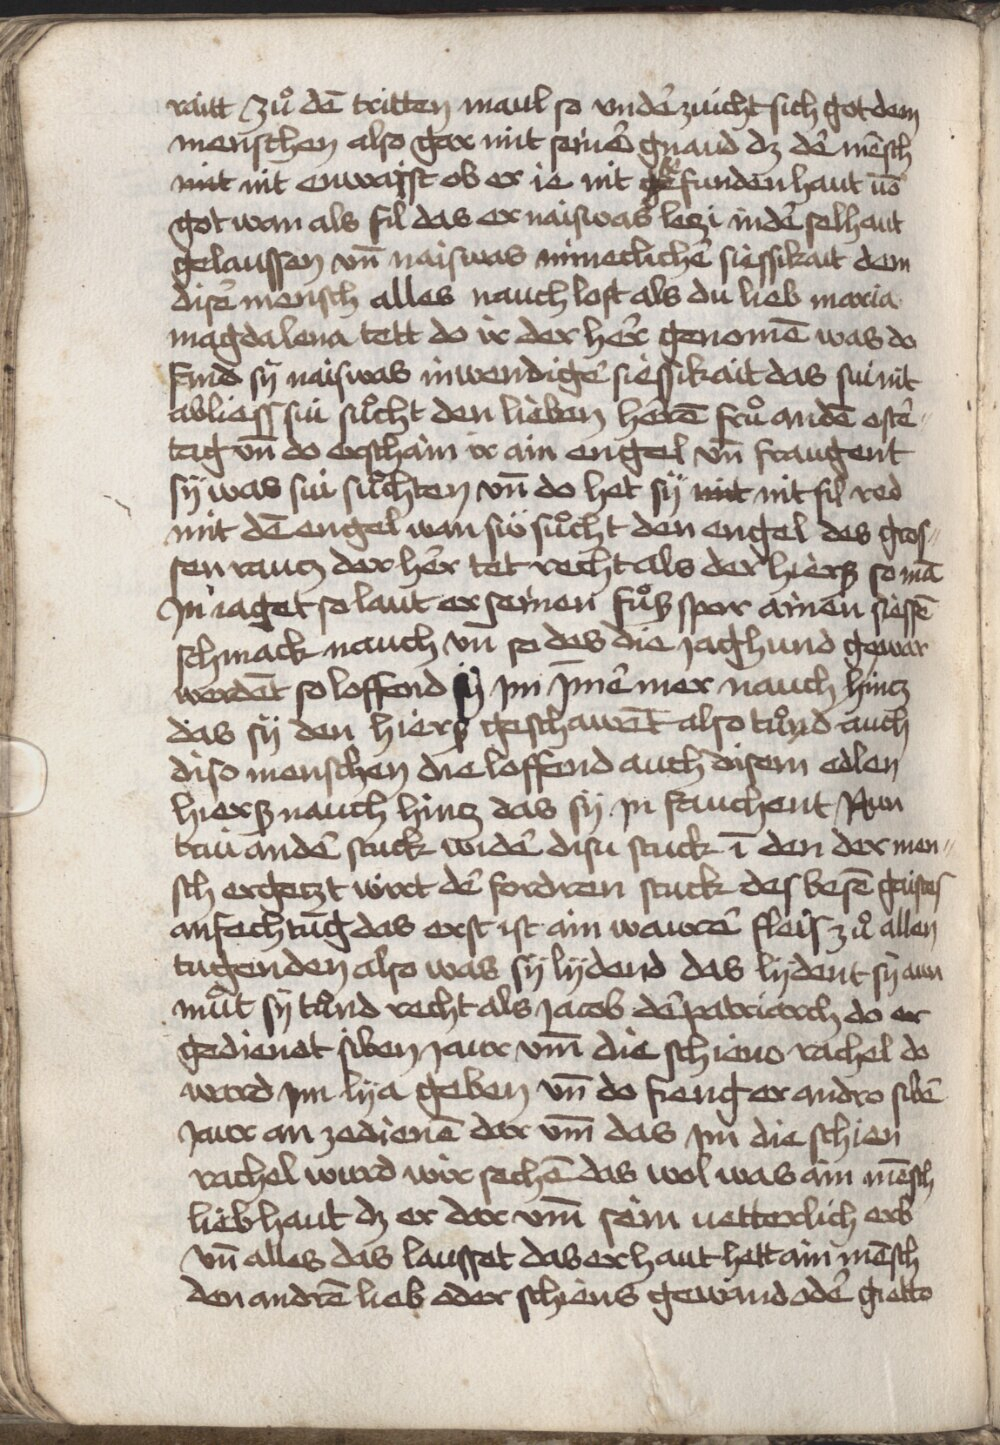 raitt zuͦ dē tritten maul so vnder̄zuicht sich got dem
menschen also gar mit seiner̄ gnaud dz der̄ mēsch
nit enwaist ob er ie nit gefunden haut uō
got wan als fil das er naiswas lezi in der̄ sel haut
gelaussen vn̄ naiswas inneclicher̄ siessikait dem
diser̄ mensch alles nauch loft als du lieb maria
magdalena tett do ir der her̄r genomē was do
fand sÿ naiswas inwendiger̄ siessikait das sui nit
abliess sui suͦcht den lieben her̄ē fruͦ an dē oster̄-
tag vn̄ do erscham ir ain engel vn̄ fraugent
sÿ was sui suͦchten vn̄ do het sÿ nit fil red
mit dē engel wan sui suͦcht den engel des gros-
sen rautz der her̄r tet recht als der hierß so mā
In iaget so laut er seinen fuͦßspor ainen siessē
schmack nauch vn̄ so des die jaghund gewar
werdēt so loffend sÿ im Imer̄ mer nauch hintz
das sÿ den hierß geschawēt also tuͦnd auch
diso menschen die loffend auch disem edlen
hierß nauch hintz das sÿ in fauchent Nun
trui ander̄ stuck wider̄ disu stuck ī den der men-
sch ergetzt wirt der̄ fordren stuck des besē gaistes
anfechtūg das erst ist ain waurer̄ fleis zuͦ allen
tugenden also was sÿ lÿdend das lÿdent sÿ aun
muͦt sÿ tuͦnd recht als Jacob der̄ patriarch do er
gedienet siben jaur vm̄ die schieno rachel do
ward im lÿa geben vn̄ do fieng er andro sibē
Jaur an ze dienē dar vm̄ das im die schien
rachel wurd wir sechē das wol was ain mēsch
lieb haut dz er dar vm̄ sein uetterlich erb
vn̄ alles das lausset das er haut hett ain mēsch
den andrē lieb oder schiens gewand oder̄ gietto